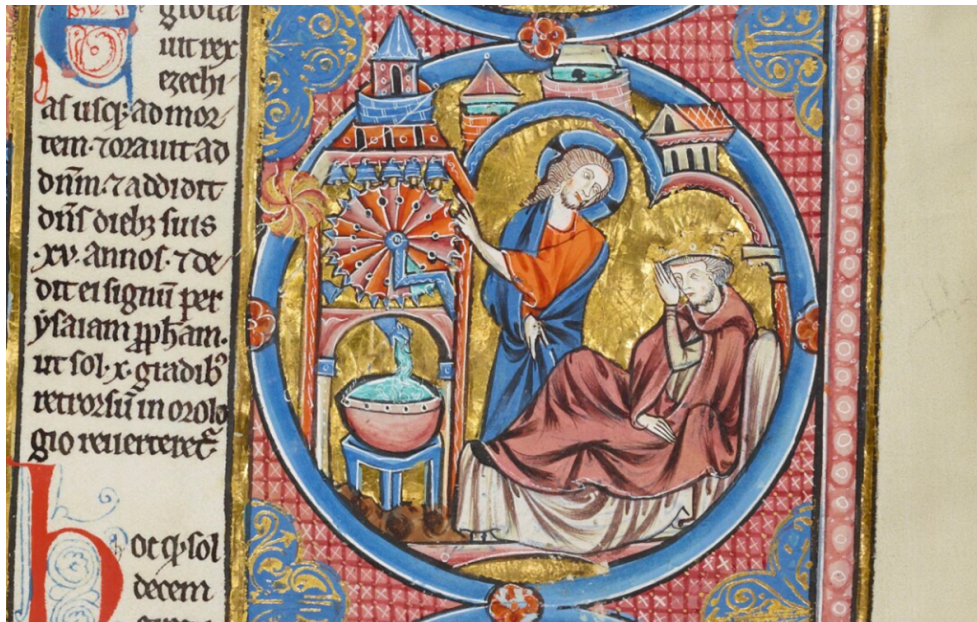 E giota
uit rex
ezechi
as usq; ad mor
tem · ⁊ orauit ad
dñm · ⁊ addidit
dñs dieb; suis
·xv· annos · ⁊ de
dit ei signũ per
ysaiam ꝓph̃am ·
ut sol · x · gradib᷒
retrorsũ in orolo
gio reuerteret᷑
hoc qꝫ sol
decem